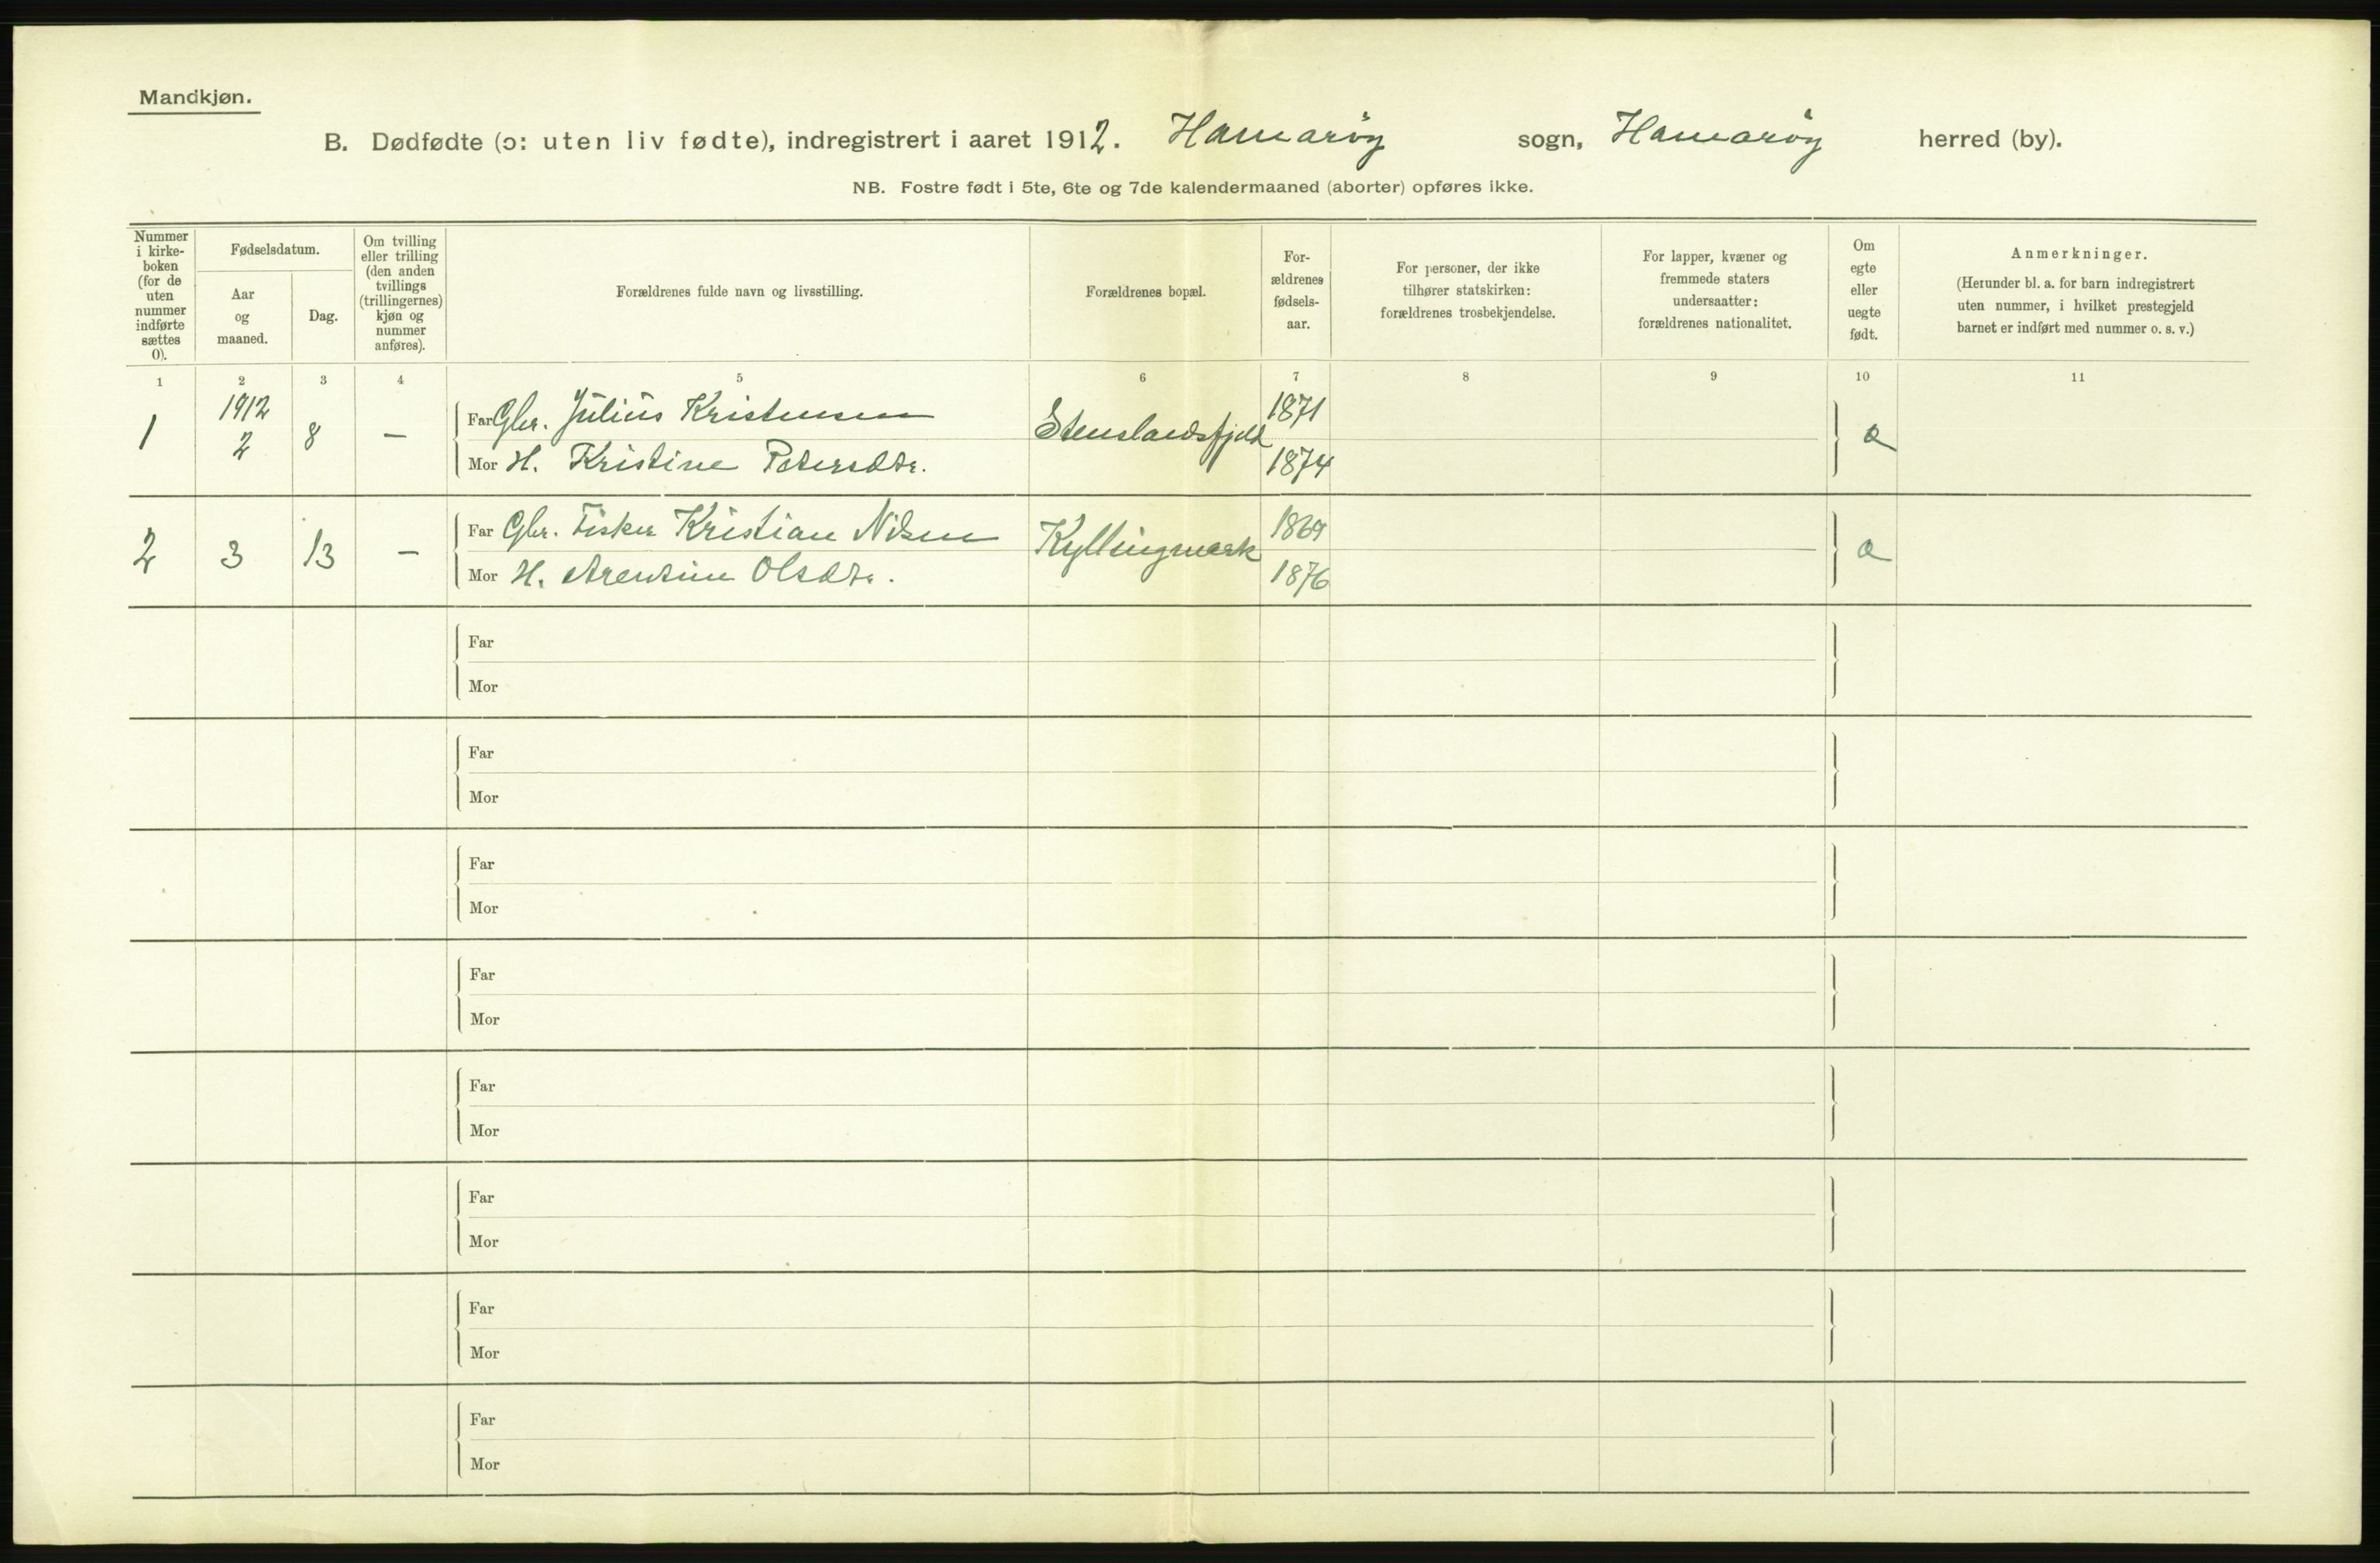 Mandkjøn.
B. Dødfødte (ɔ: uten liv fødte), indregistrert i aaret 1912. Hamarøy sogn, Hamarøy herred (by).
NB. Fostre født i 5te, 6te og 7de kalendermaaned (aborter) opføres ikke.
Nummer
i kirke-
boken
(for de
uten
nummer
indførte
sættes
0).
Fødselsdatum.
Aar
og
maaned.
Dag.
Om tvilling
eller trilling
(den anden
tvillings
(trillingernes)
kjøn og
nummer
anføres).
Forældrenes fulde navn og livsstilling.
Forældrenes bopæl.
For-
ældrenes
fødsels-
aar.
For personer, der ikke
tilhører statskirken:
forældrenes trosbekjendelse.
For lapper, kvæner og
fremmede staters
undersaatter:
forældrenes nationalitet.
Om
egte
eller
uegte
født.
Anmerkninger.
(Herunder bl. a. for barn indregistrert
uten nummer, i hvilket prestegjeld
barnet er indført med nummer o. s. v.)
1 2 3 4 5 6 7 8 9 10 11
1 1912 2 8 – Far Gbr. Julius Kristensen Stenslandsfjeld 1871
Mor H. Kristine Petersdtr. 1874
2 3 13 – Far Gbr. Fisker Kristian Nilsen Kyllingmark 1869
Mor H. Arentine Olsdtr. 1876
Far
Mor
Far
Mor
Far
Mor
Far
Mor
Far
Mor
Far
Mor
Far
Mor
Far
Mor